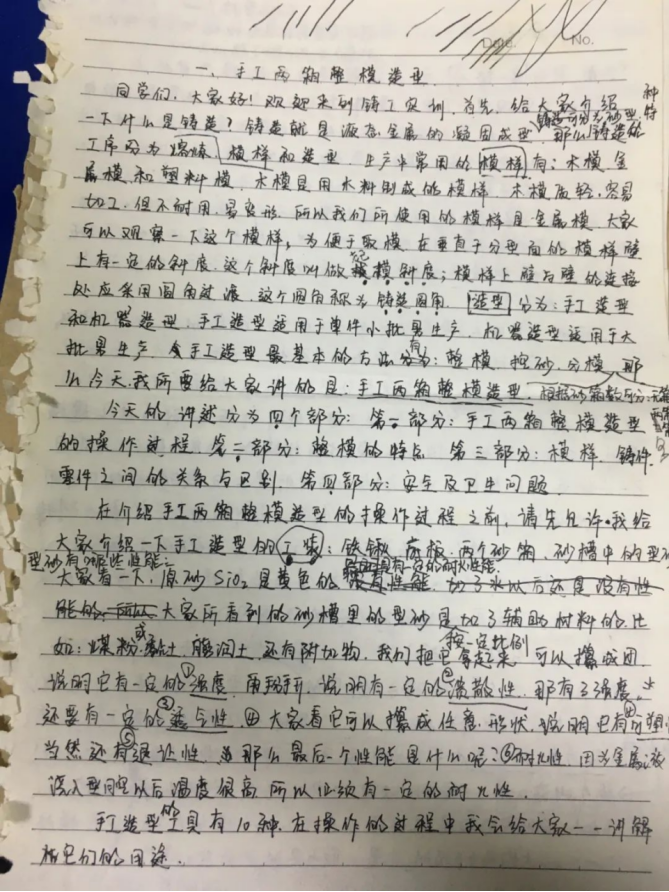 Date. No.
一、手工两箱整模造型
同学们,大家好!欢迎来到铸工实训,首先,给大家介绍
一下什么是铸造?铸造就是液态金属的凝固成型,那么铸造的
工序分为熔炼 模样和造型,生产中常用的模样有:木模 金
属模 和塑料模,木模是用木料制成的模样 木模质轻,容易
加工,但不耐用,易变形,所以我们所使用的模样是金属模,大家
可以观察一下这个模样,为便于取模,在垂直于分型面的模样壁
上有一定的斜度,这个斜度叫做起模斜度;模样上壁与壁的连接
处应采用圆角过渡,这个圆角称为铸造圆角,造型分为:手工造型
和机器造型,手工造型适用于单件小批量生产,机器造型适用于大
批量生产,手工造型最基本的方法有:整模,挖砂,分模,那
么今天,我所要给大家讲的是:手工两箱整模造型 根据砂箱数可分:
今天的讲述分为四个部分:第一部分:手工两箱整模造型
的操作过程 第二部分:整模的特点 第三部分:模样、铸件、
零件之间的关系与区别 第四部分:安全及卫生问题
在介绍手工两箱整模造型的操作过程之前,请先允许我给
大家介绍一下手工造型的工装:铁锹 底板 两个砂箱,砂槽中的型砂
型砂有哪些性能:
大家看一下,原砂SiO₂是黄色的 没有性能,加了水以后还是没有性
能的,所以 大家所看到的砂槽里的型砂是加了辅助材料的,比
如:煤粉或黏土 膨润土 还有附加物,我们把它按一定比例拿起来 可以攥成团
说明它有一定的①强度 用手掰开,说明有一定的②溃散性,那有了强度,
还要有一定的③透气性,④大家看它可以攥成任意形状,说明它有可塑
当然还有⑤退让性 那么最后一个性能是什么呢?⑥耐火性,因为金属液
浇入型腔以后温度很高 所以必须有一定的耐火性.
手工造型的工具有10种,在操作的过程中我会给大家一一讲解
它们的用途.